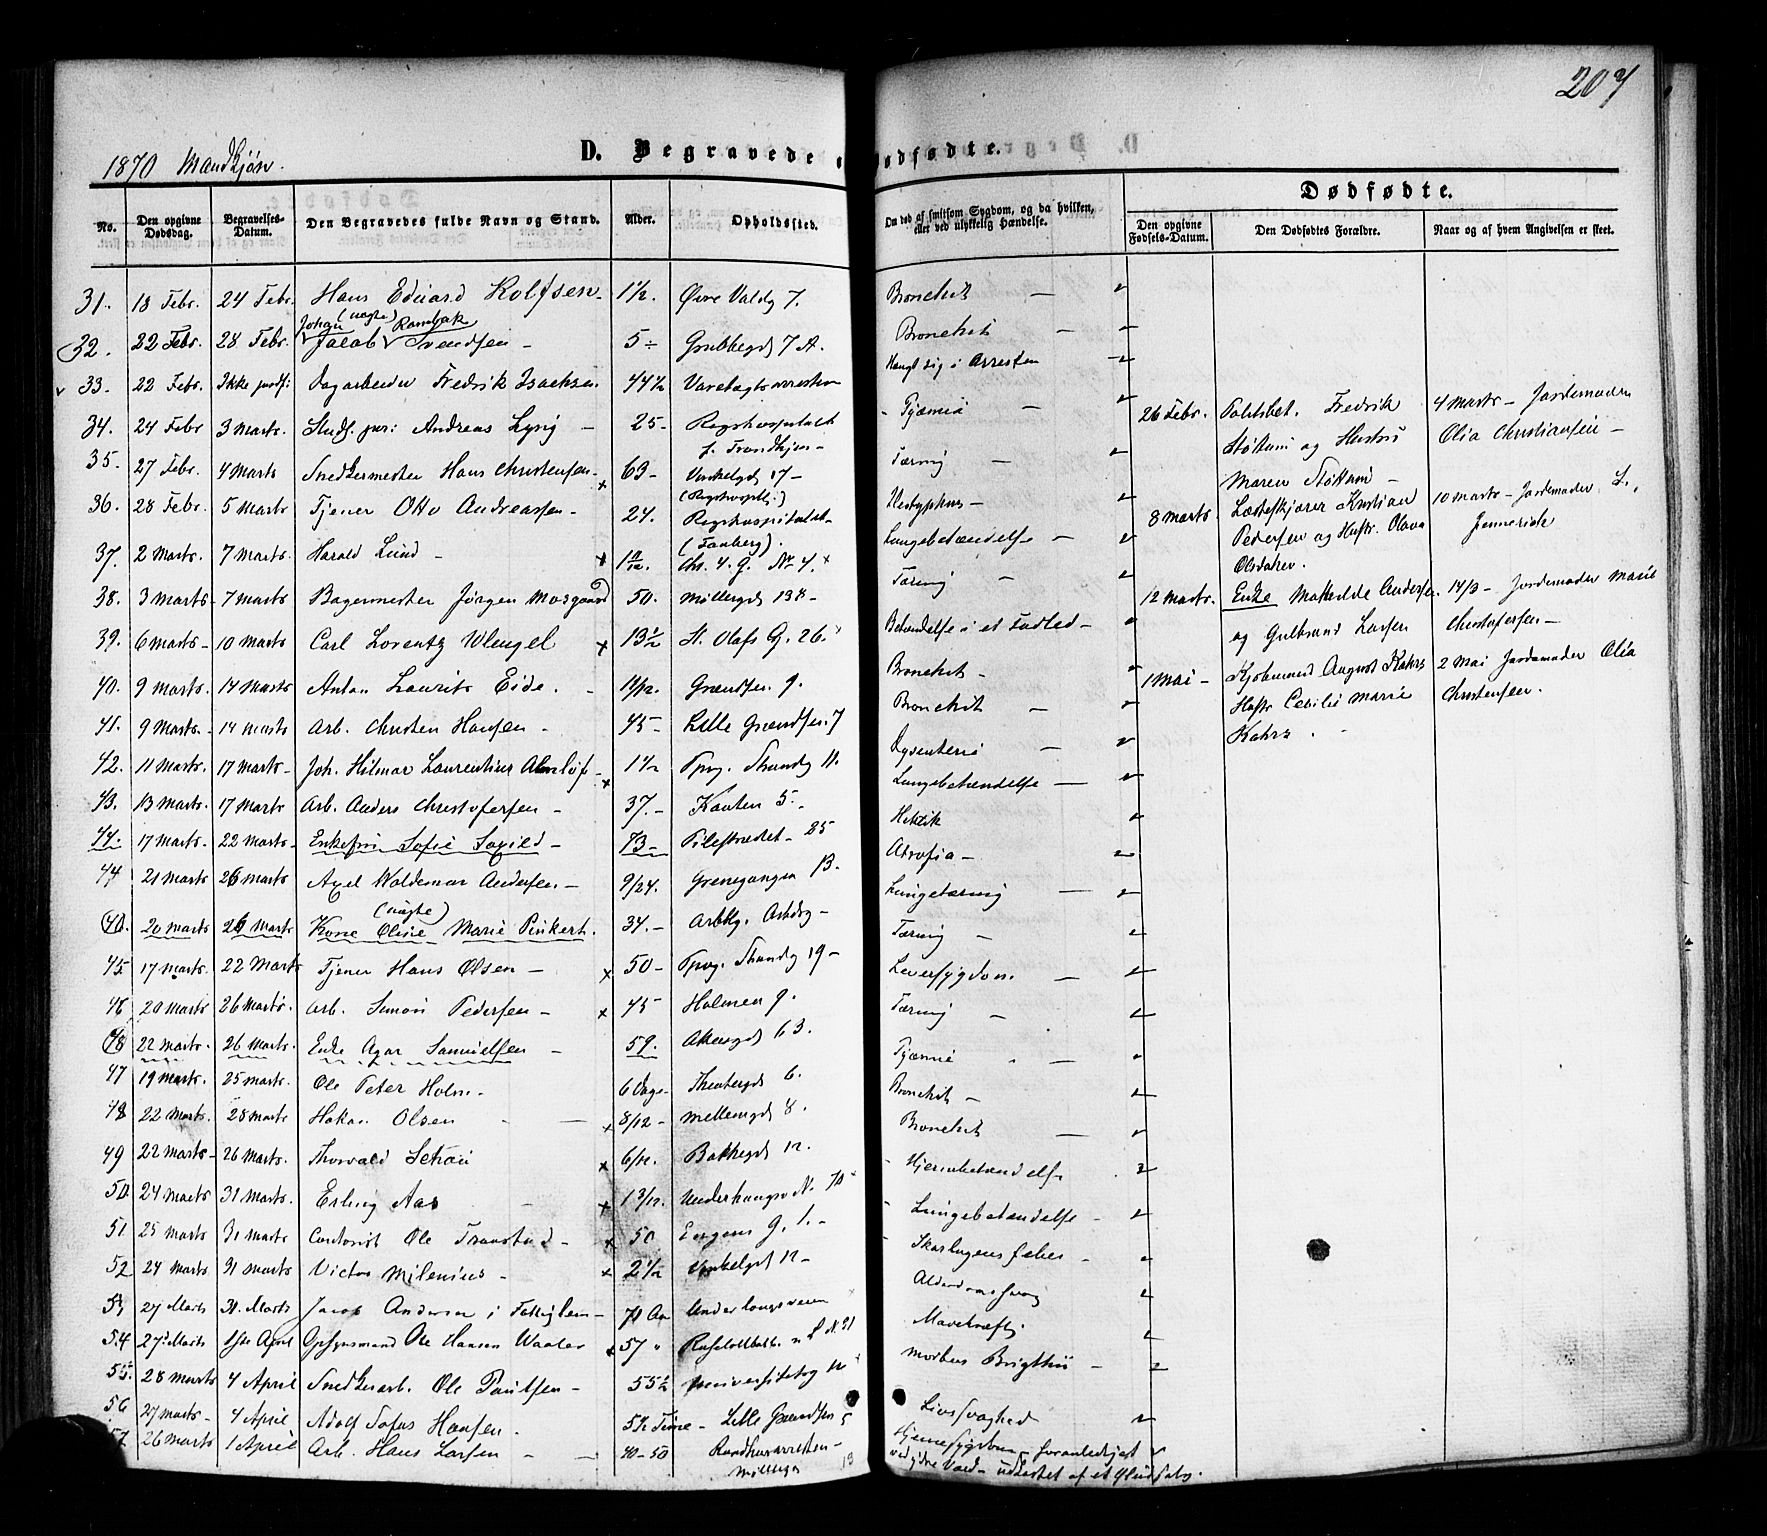 207
1870 Mandkjøn.
D. Begravede o Dødfødte.
No.
Den opgivne Dødsdag.
Begravelses-Datum.
Den Begravedes fulde Navn og Stand.
Alder.
Opholdssted.
Om død af smitsom Sygdom, og da hvilken, eller ved ulykkelig Hændelse.
Dødfødte.
Den opgivne Fødsels-Datum.
Den Dødfødtes Forældre.
Naar og af hvem Angivelsen er skeet.
31. 18 Febr. 24 Febr. Hans Edvard Rolfsen 1½. Øvre Voldg 7. Bronchit —
(uægte)
32. 22 Febr. 28 Febr. Johan Jacob Svendsen — 5 Grubbegd 7 A. Bronchit —
33. 22 Febr. Ikke Dagarbeider Fredrik Isachsen 44½ Varetægtsarresten Hængt sig i Arresten
34. 24 Febr 3 Marts. Andreas Lysig — 25 — Rigshospitalet f. Trondhjem — Pyæmie —
35. 27 Febr. 4 Marts Snedkermester Hans Christensen 63 — Vinkelgd 17 — Tæring —
(Rigshospit:)
36. 28 Febr. 5 Marts Tjener Otto Andreassen — 24. Rigshospitalet (Tanberg). —
37. 2 Marts. 7 Marts. Harald Lund — Chr. 4. G. No 4. Lungebetændelse —
38. 3 Marts — 7 Marts Bagermester Jørgen Mosgaard 50. Møllergd 138 — Tæring —
39. 6 Marts — 10 Marts Carl Lorentz Wengel 13½ St. Olafs G. 26. Betændelse i et Fodled —
40. 9 Marts. 14 Marts Anton Laurits Eide. 11/12. Grændsen 9. Bronchit —
41. 9 Marts. 14 Marts Arb. Christen Hansen — 45 — Lille Grændsen 7 Bronchit —
42. 11 Marts. 17 Marts — Joh. Hilmar Laurentius Almløf — 1½ Tpvg. Strandg 11. Dysenterie —
43. 13 Marts. 17 Marts — Arb. Anders Christofersen — 37. — Kanten 5. — Lungebetændelse —
44. 17 Marts. 22 Marts — Enkefru Sofie — 73 — Pilestrædet — 25 Hektik
44 21 Marts 26 Marts. Axel Waldemar Andersen — 9/24. Grønnegangen 13. Atrofia —
(uægte)
20 Marts 26 Marts Kone Oline Marie Pinkert. 34. — Arbbyg. — Lungetæring —
45. 17 Marts. 22 Marts Tjener Hans Olsen — 50 — Tpvg. Strandg 19 — Tæring —
46 20 Marts 26 Marts. Arb. Simon Pedersen — 45 Holmen 9. Leversygdom. —
48 22 Marts. 26 Marts. Enke Agar Samuelsen — 59. Akersgd 63. Tæring —
47 19 Marts. 25 Marts. Ole Peter Holm. 6 Dage — Theatergd 6. Pyæmie —
48 22 Marts. 28 Marts. Hakon Olsen — 8/12 — Møllergd 8. Bronchit —
49 22 Marts — 26 Marts. Thorvald Schou 6/12. Bakkegd 12. Bronchit —
50. 24 Marts 31 Marts. Erling Aas 1 3/12. Underhaugsv No. 10 Hjernebetændelse
51 25 Marts 31 Marts Contorist Ole — 50 G. 1. — Lungebetændelse —
52 24 Marts. 31 Marts Victor Milenius — 2½ Vinkelgd 12 — Skarlagensfeber —
53 27 Marts 31. Marts Jacob Andersen i 71 Aar Underhaugsveien Alderdomssvag
54 27. Marts 1ste April Opsynsmand Ole Hansen Waaler 57 "
55. 28 Marts 4 April Snedkerarb. Ole Paulsen — 55½ Universitetsg 12 Morbus Brigthii —
56 27 Marts — 4 April Adolf Hansen. Time — Lille Grændsen 5 Livssvaghed
57 26 Marts 1 April Arb. Hans Larsen — 40 — 50 Raadhusarresten — Møllergd 19 Hjernesygdom foranlediget ved ydre Vold —
26 Febr. Politibet. Fredrik Støttum og Hustru Maren Støttum — 4 Marts — Jordemoder Olia Christiansen —
8 Marts. Kristian Pedersen og Hustr. Olava 10 Marts — Jordemoder L.
12 Marts. Enke Mathilde Andersen og Gulbrand Larsen 14/3 — Jordemoder Marie Christofersen —
1 Mai — Kjøbmand August Kahrs Hustr Cecilie Marie Kahrs. 2 Mai Jordemoder Olia Christensen.